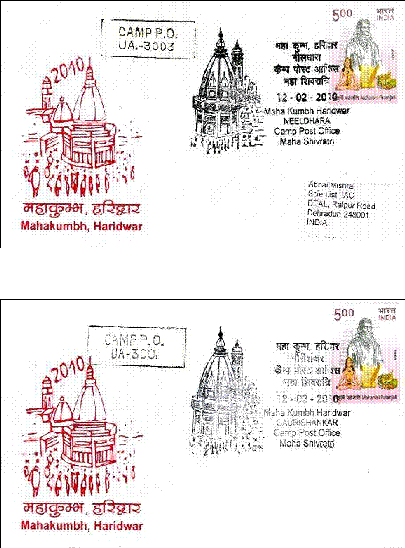 CAMP P.O.
UA-3003
2010
महाकुम्भ, हरिद्वार
Mahakumbh, Haridwar
महा कुम्भ, हरिद्वार
नीलधारा
कैम्प पोस्ट आफिस
महा शिवरात्रि
12-02-2010
Maha Kumbh Haridwar
NEELDHARA
Camp Post Office
Maha Shivratri
5.00 भारत
INDIA
DEAL, Raipur Road
Dehradun 248001
INDIA
CAMP P.O.
UA-300
2010
महाकुम्भ, हरिद्वार
Mahakumbh, Haridwar
महा कुम्भ, हरिद्वार
महा शिवरात्रि
12-02-2010
Maha Kumbh Haridwar
GAURISHANKAR
Camp Post Office
Maha Shivratri
5.00 भारत
INDIA